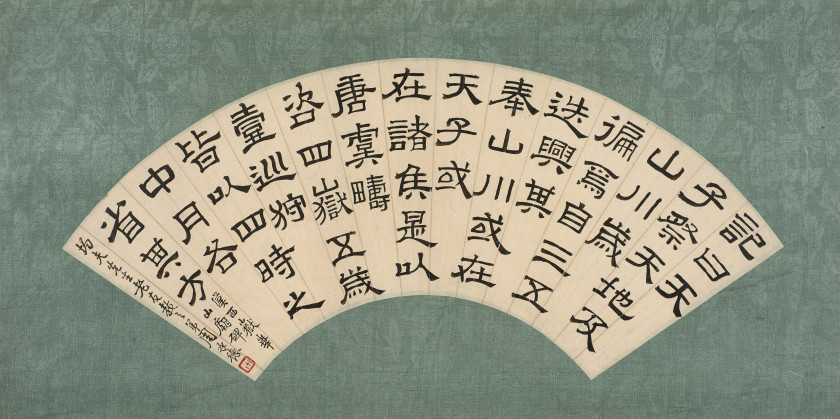 記曰天
子祭天地及
山川歲
徧焉自三五
迭興其
奉山川或在
天子或
在諸侯是以
唐虞疇
咨四嶽五歲
壹巡狩
皆以四時之
中月各
省其方
西嶽華
山廟碑
夫先生老友教之弟周承德